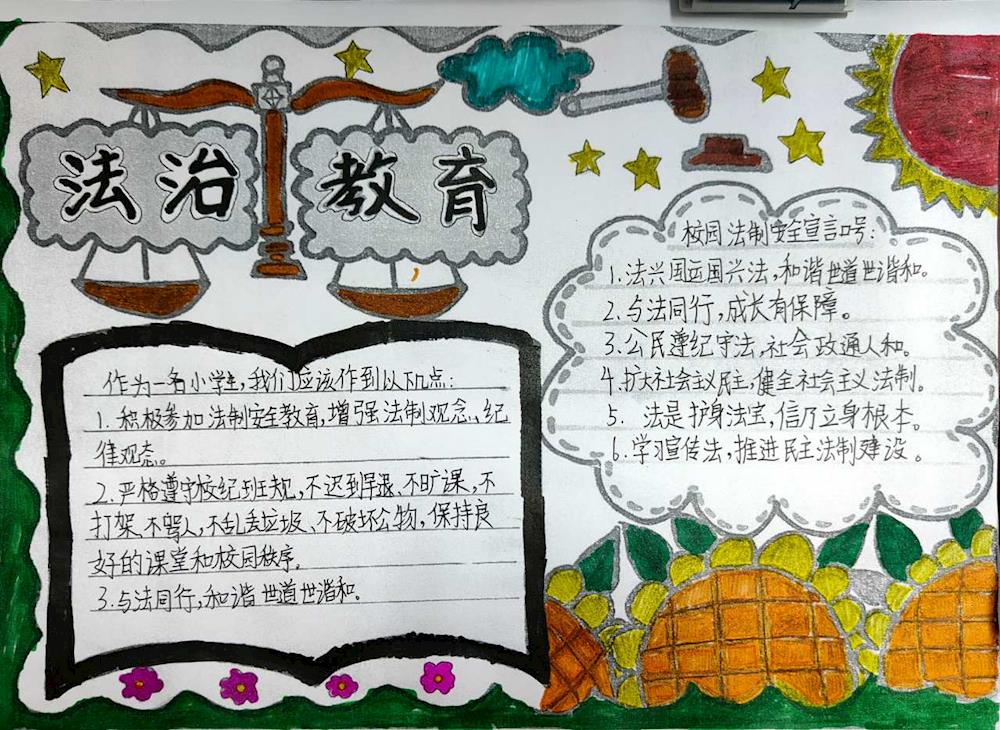 法治教育
作为一名小学生,我们应该作到以下几点:
1.积极参加法制安全教育,增强法制观念、纪
律观念。
2.严格遵守校纪班规,不迟到早退、不旷课,不
打架、不骂人,不乱丢垃圾、不破坏公物,保持良
好的课堂和校园秩序。
3.与法同行,和谐世道世谐和。
校园法制安全宣言口号:
1.法兴国运国兴法,和谐世道世谐和。
2.与法同行,成长有保障。
3.公民遵纪守法,社会政通人和。
4.扩大社会主义民主,健全社会主义法制。
5.法是护身法宝,信乃立身根本。
6.学习宣传法,推进民主法制建设。